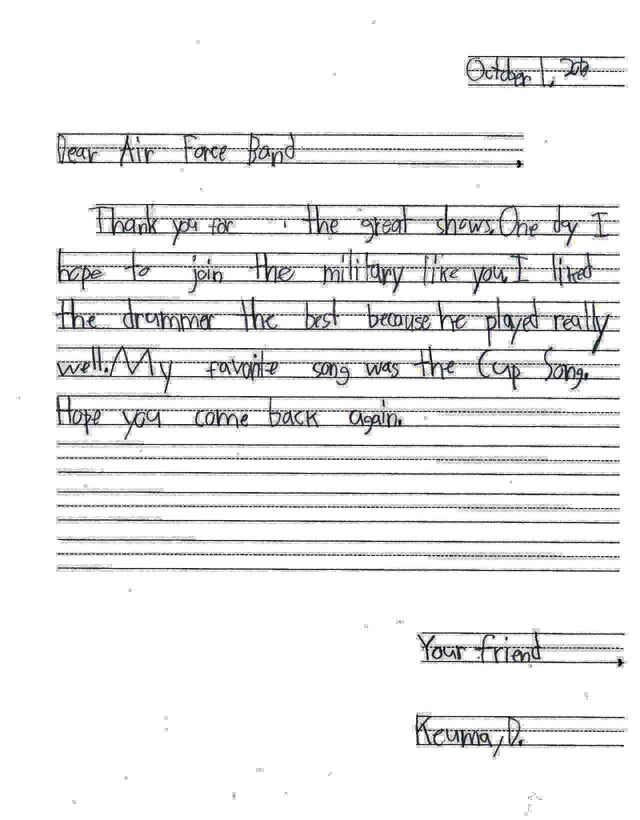 October 1,
Dear Air Force Band ,
Thank you for the great shows. One day I
hope to join the military like you. I liked
the drummer the best because he played really
well. My favorite song was the Cup Song.
Hope you come back again.
Your friend ,
Keuma, D.